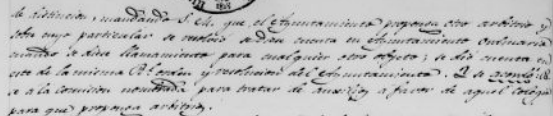 de distincion, mandando S. M. que el Ayuntamiento proponga otro arbitrio y
sobre cuyo particular se resolvió a dar cuenta en Ayuntamiento Ordinario
cuando se diese llamamiento para cualquier otro objeto; se dió cuenta en
este de la misma Rl orden y resolucion del Ayuntamiento. Y se acordó:
se a la comision nombrada para tratar de auxilios á favor de aquel Colegio
para que proponga arbitrios.